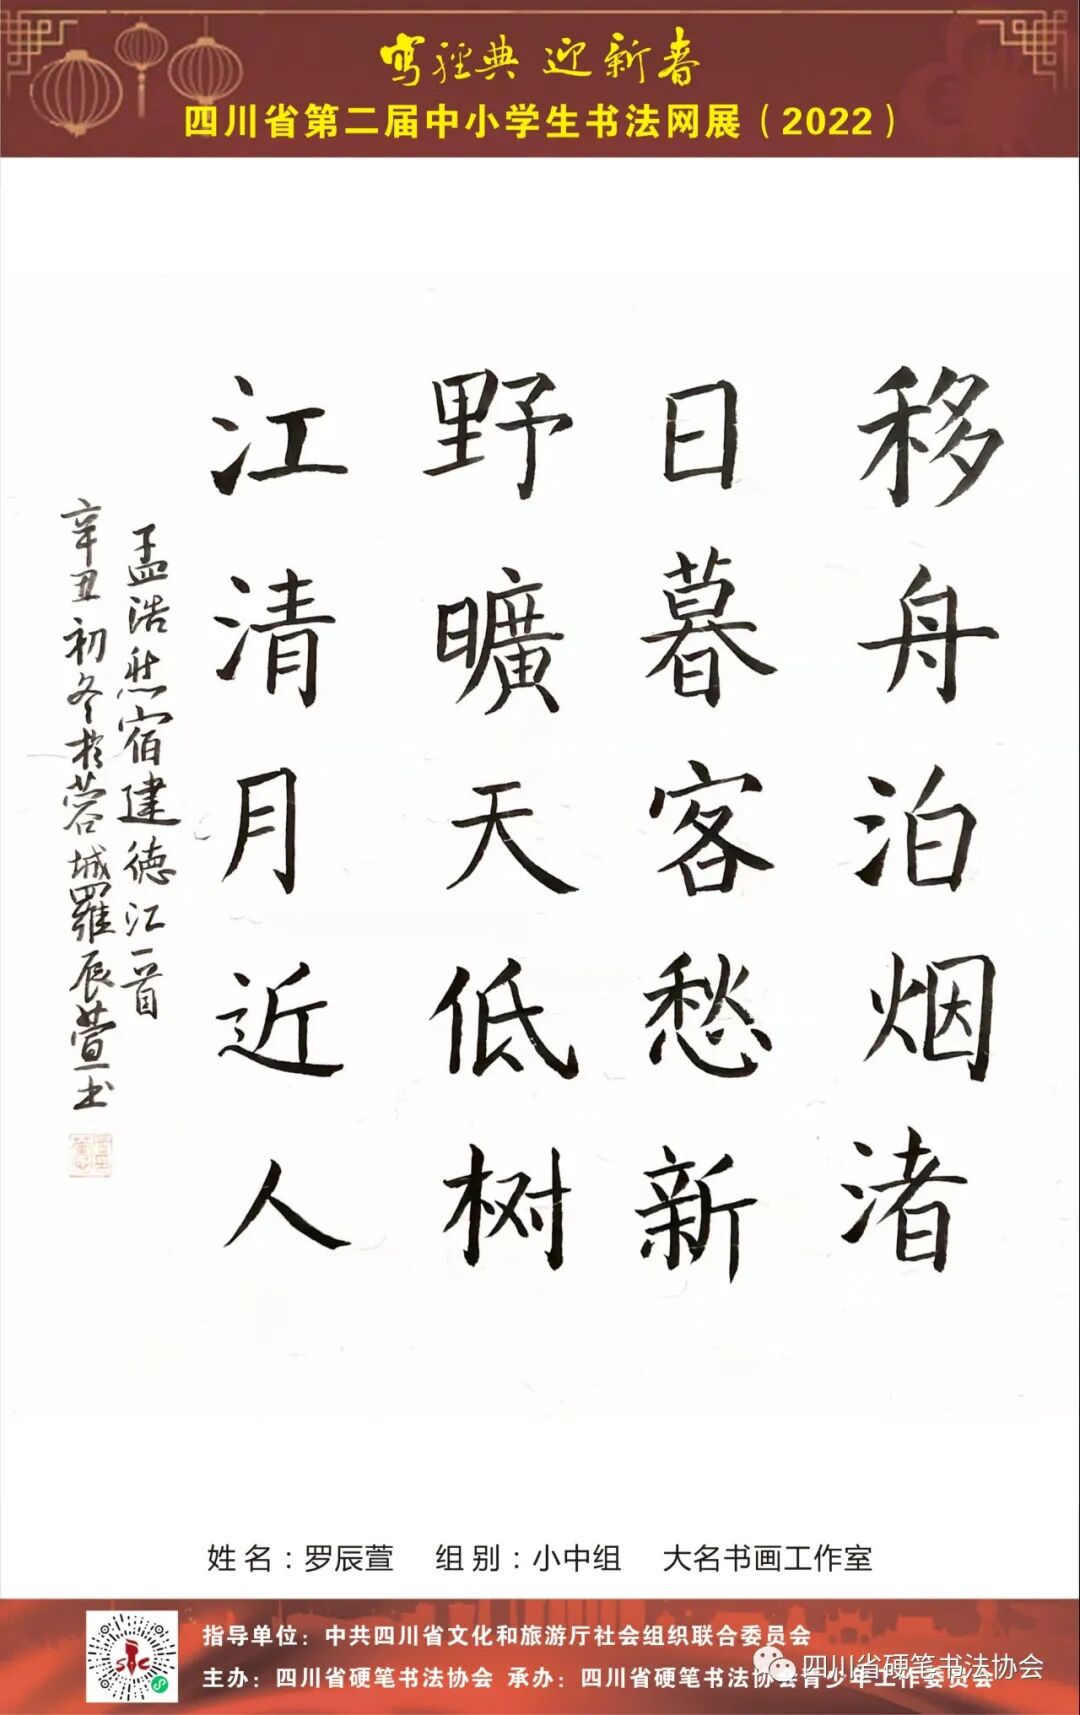 写经典 迎新春
四川省第二届中小学生书法网展（2022）
移舟泊烟渚
日暮客愁新
野曠天低树
江清月近人
孟浩然宿建德江一首
辛丑初冬於蓉城羅辰萱书
姓名：罗辰萱 组别：小中组 大名书画工作室
指导单位：中共四川省文化和旅游厅社会组织联合委员会
主办：四川省硬笔书法协会 承办：四川省硬笔书法协会青少年工作委员会
四川省硬笔书法协会